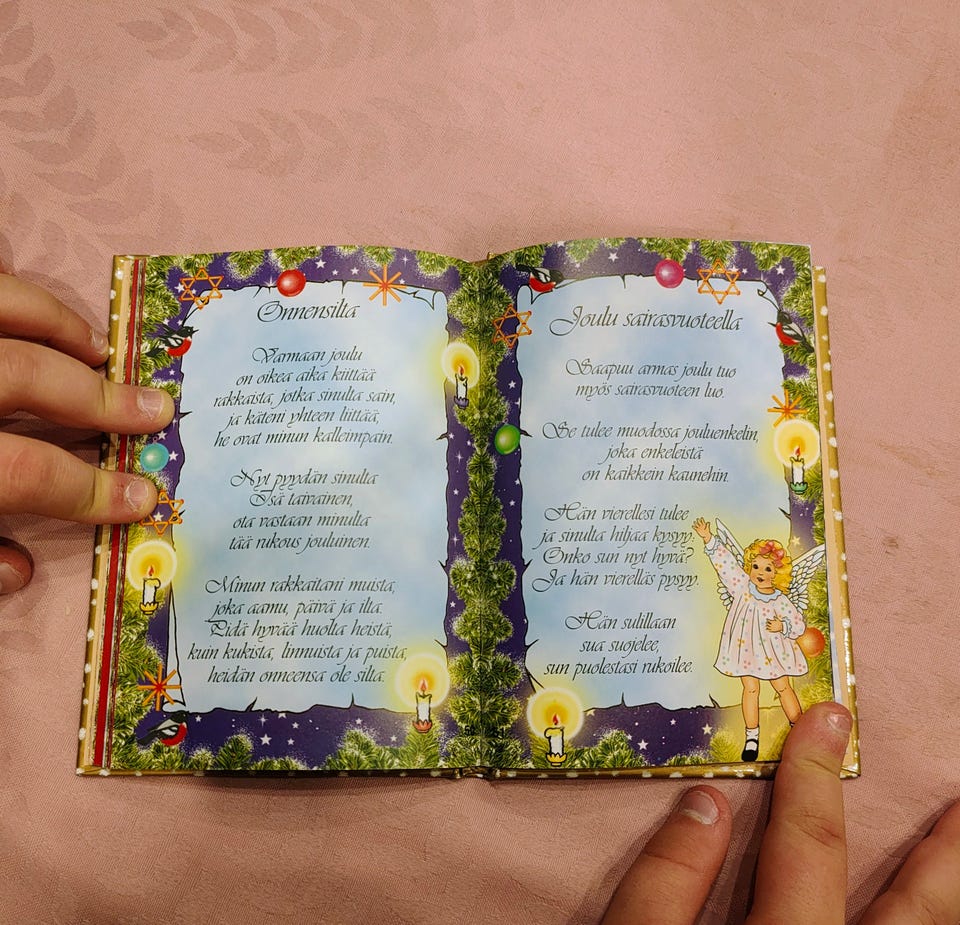 Onnensilta
Varmaan joulu
on oikea aika kiittää
rakkaista, jotka sinulta sain,
ja käteni yhteen liittää,
he ovat minun kalleimpain.
Nyt pyydän sinulta
Isä taivainen,
ota vastaan minulta
tää rukous jouluinen.
Minun rakkaitani muista,
joka aamu, päivä ja ilta.
Pidä hyvää huolta heistä,
kuin kukista, linnuista ja puista,
heidän onneensa ole silta.
Joulu sairasvuoteella
Saapuu armas joulu tuo
myös sairasvuoteen luo.
Se tulee muodossa jouluenkelin,
joka enkeleistä
on kaikkein kaunehin.
Hän vierellesi tulee
ja sinulta hiljaa kysyy:
Onko sun nyt hyvä?
Ja hän vierelläs pysyy.
Hän sulillaan
sua suojelee,
sun puolestasi rukoilee.